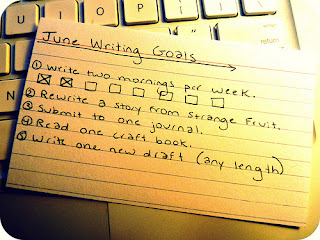 U I O P
return
June Writing Goals
① Write two mornings per week.
② Rewrite a story from Strange Fruit.
③ Submit to one journal.
④ Read one craft book.
⑤ Write one new draft (any length)